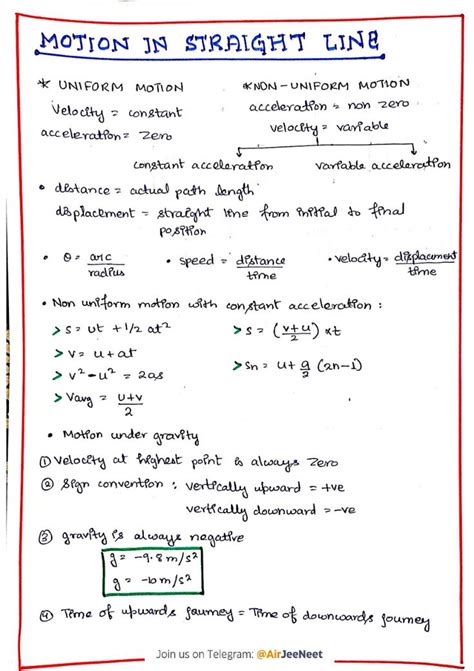 MOTION IN STRAIGHT LINE
* UNIFORM MOTION
Velocity = constant
acceleration = zero
* NON-UNIFORM MOTION
acceleration = non zero
velocity = variable
constant acceleration
variable acceleration
• distance = actual path length
displacement = straight line from initial to final
position
• θ = arc/radius • speed = distance/time • velocity = displacement/time
• Non uniform motion with constant acceleration :
> s = ut + 1/2 at² > s = (v+u/2) xt
> v = u + at > Sn = u + a/2 (2n-1)
> v² - u² = 2as
> Vavg = u+v/2
• Motion under gravity
① Velocity at highest point is always zero
② Sign convention : vertically upward = +ve
vertically downward = -ve
③ gravity is always negative
g = -9.8 m/s²
g = -10 m/s²
④ Time of upwards journey = Time of downwards journey
Join us on Telegram: @AirJeeNeet